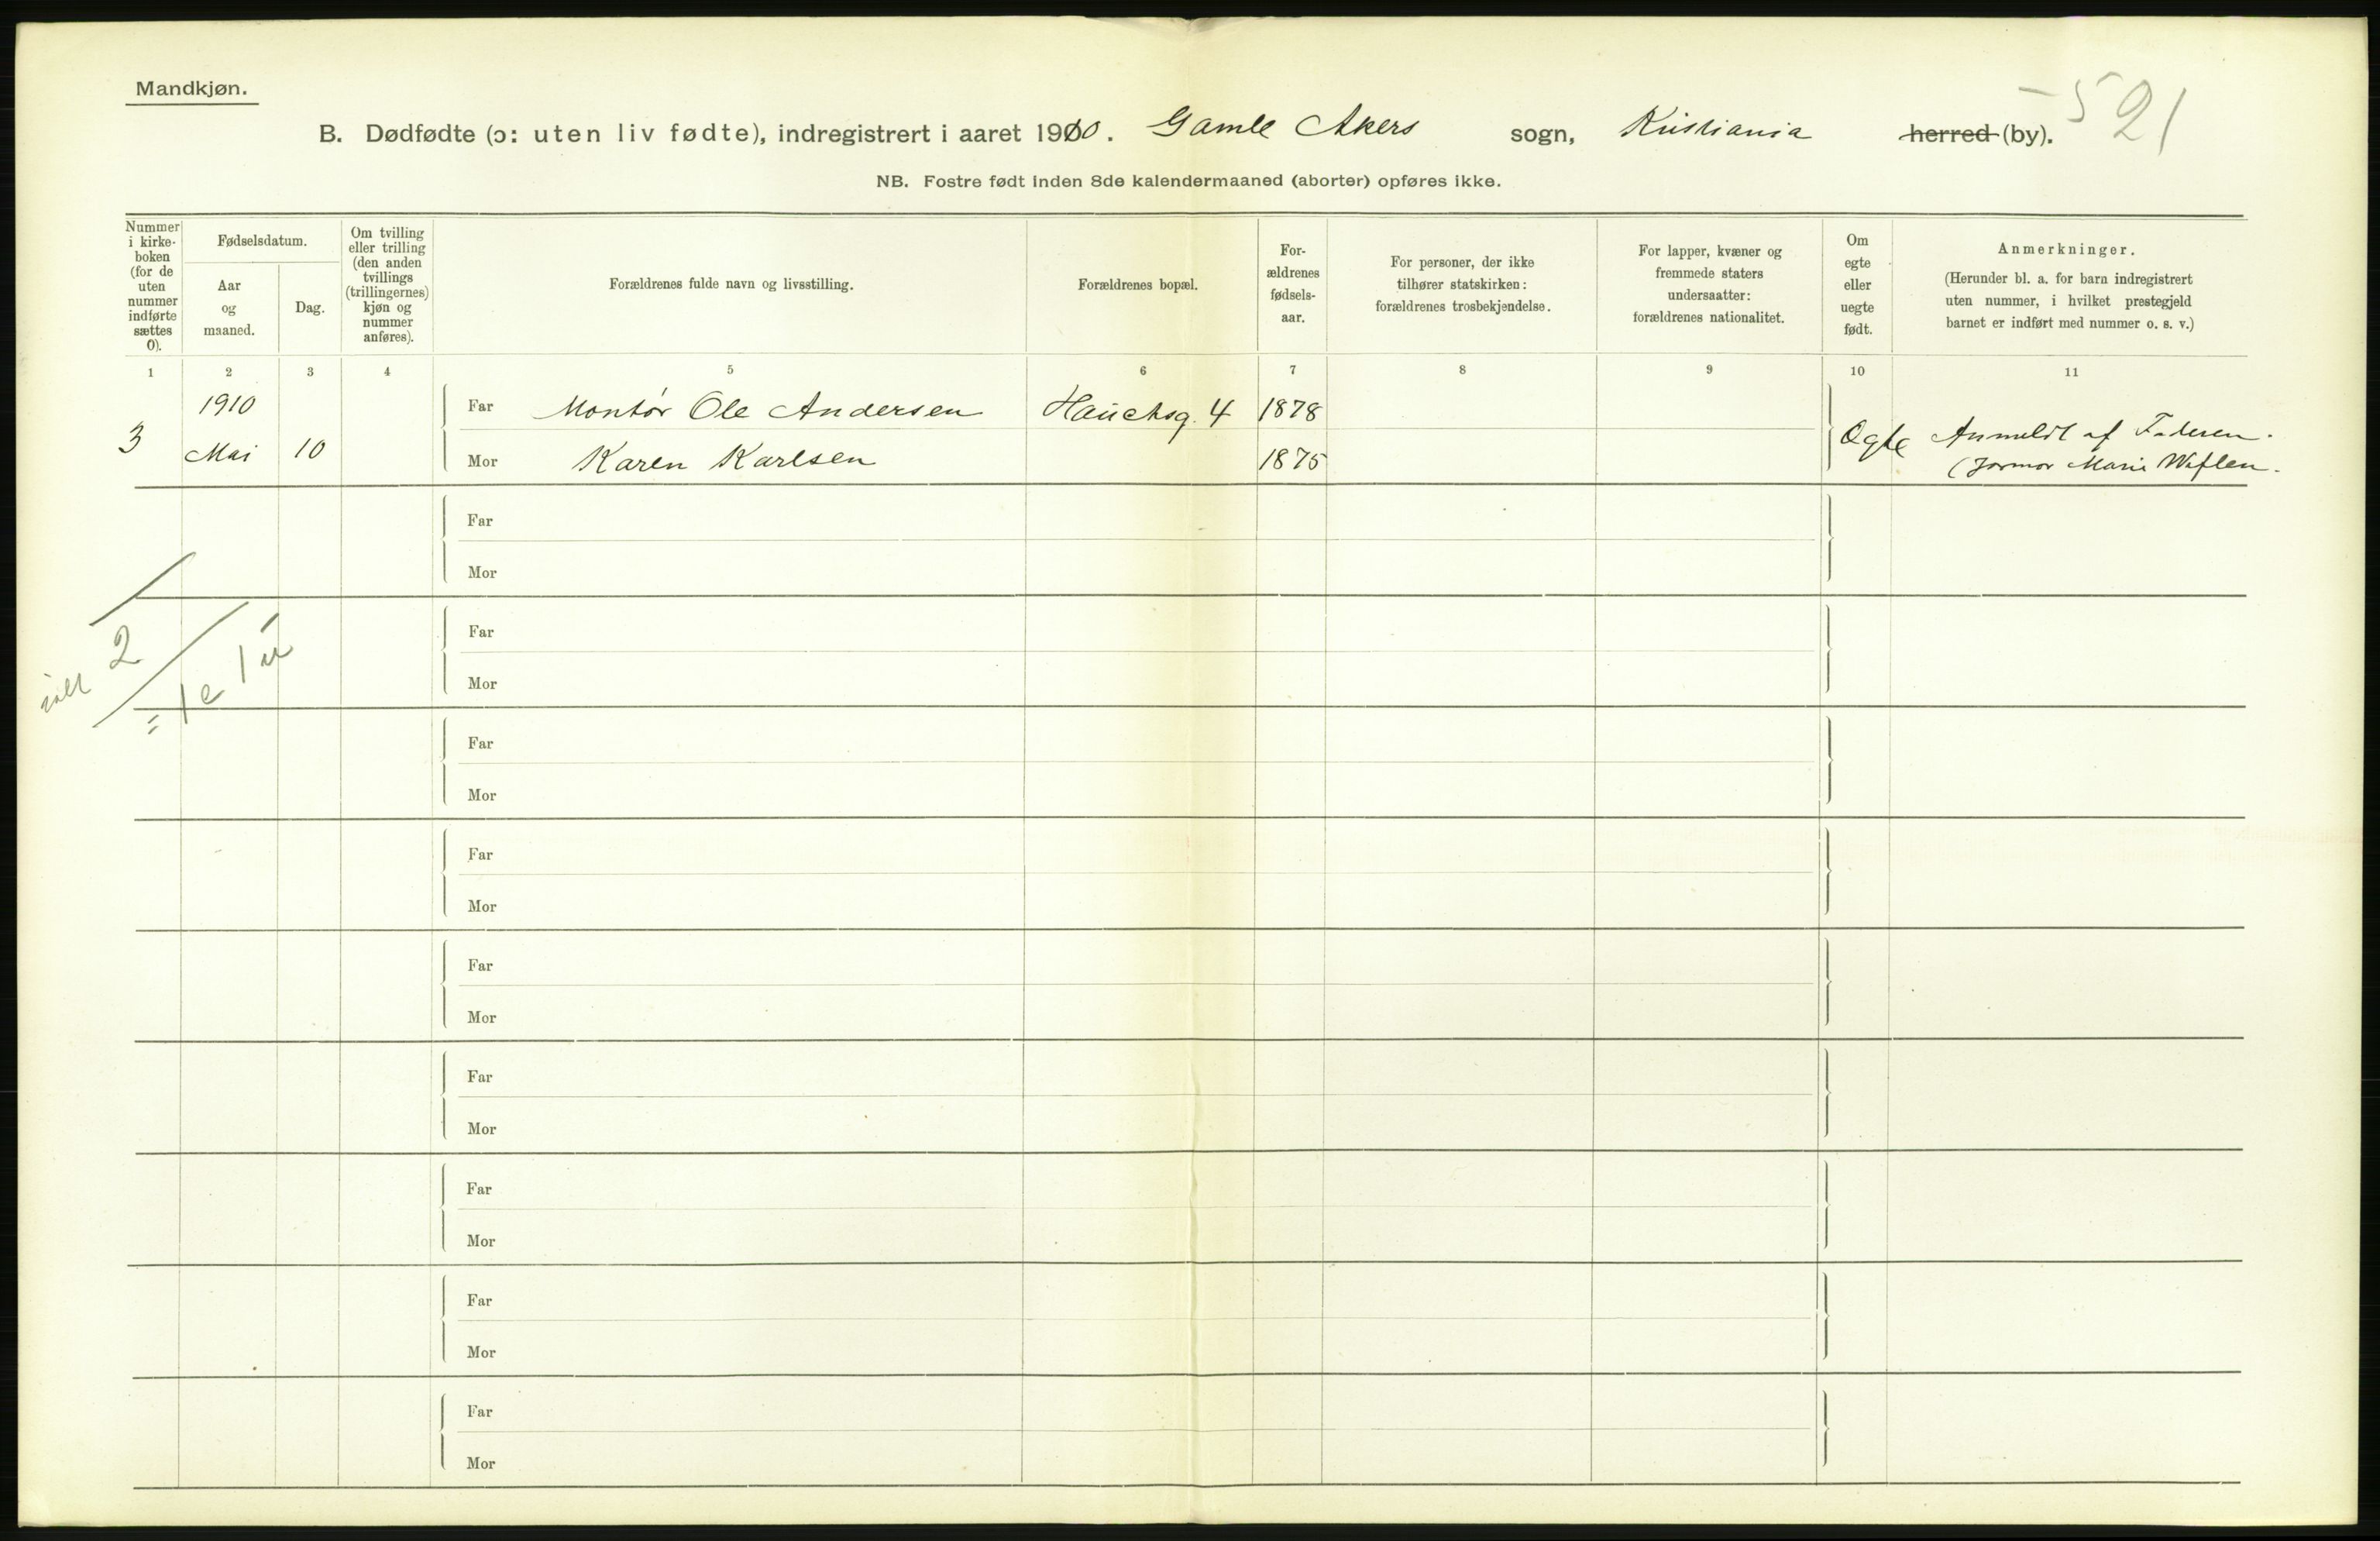 Mandkjøn.
521
B. Dødfødte (ɔ: uten liv fødte), indregistrert i aaret 1910. Gamle Akers sogn, Kristiania herred (by).
NB. Fostre født inden 8de kalendermaaned (aborter) opføres ikke.
Nummer i kirke-boken (for de uten nummer indførte sættes 0).
Fødselsdatum.
Aar og maaned.
Dag.
Om tvilling eller trilling (den anden tvillings (trillingernes) kjøn og nummer anføres).
Forældrenes fulde navn og livsstilling.
Forældrenes bopæl.
For-ældrenes fødsels-aar.
For personer, der ikke tilhører statskirken: forældrenes trosbekjendelse.
For lapper, kvæner og fremmede staters undersaatter: forældrenes nationalitet.
Om egte eller uegte født.
Anmerkninger.
(Herunder bl. a. for barn indregistrert uten nummer, i hvilket prestegjeld barnet er indført med nummer o. s. v.)
1 2 3 4 5 6 7 8 9 10 11
1910 Far Montør Ole Andersen Hauchsg. 4 1878
3 Mai 10 Mor Karen Karlsen 1875 Egte Anmeldt af Faderen.
(Jormor Marie
Far
Mor
Far
Mor
ialt 2 = 1 e 1 u
Far
Mor
Far
Mor
Far
Mor
Far
Mor
Far
Mor
Far
Mor
Far
Mor